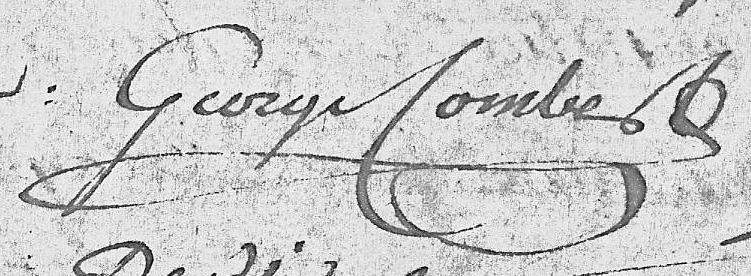 George Combes